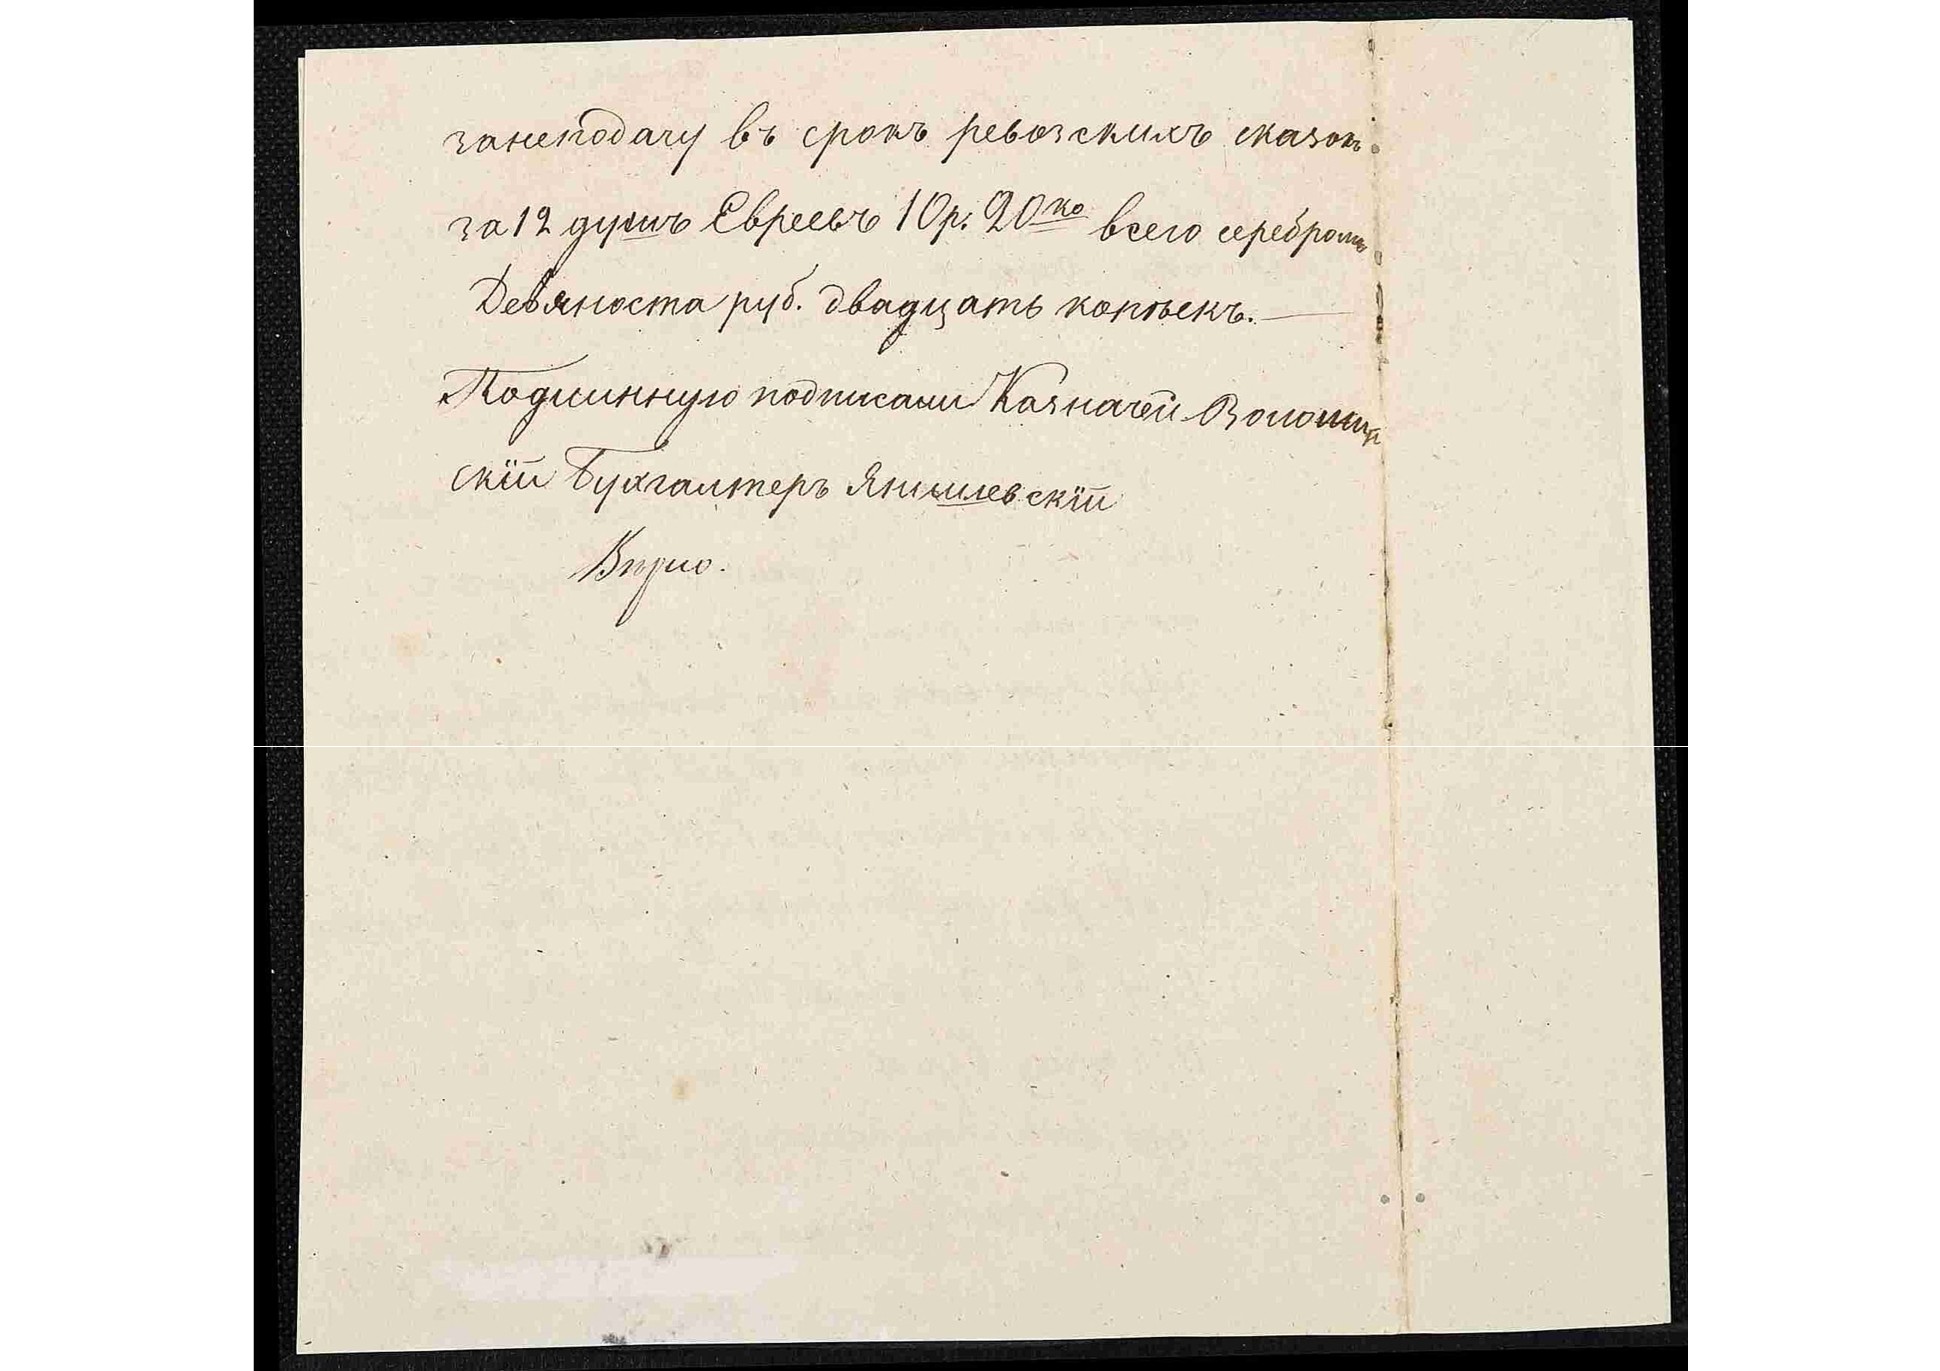 занеподачу въ срокъ ревозскихъ сказокъ
за 12 душъ Евреевъ 10 р. 20 ко всего серебромъ
Девяноста руб. двадцать копѣекъ.
Подлинную подписали Казначей
скій Бухгалтеръ Янишевскій
Вѣрно.